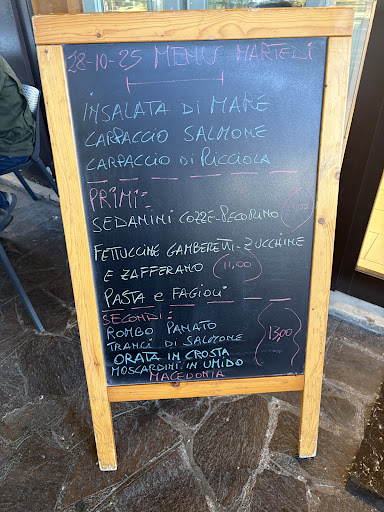 28-10-25 MENU' MARTEDÌ
INSALATA DI MARE
CARPACCIO SALMONE
CARPACCIO DI RICCIOLA
PRIMI:
SEDANINI COZZE-PECORINO
FETTUCCINE GAMBERETTI-ZUCCHINE
E ZAFFERANO 11,00
PASTA e FAGIOLI
SECONDI:
ROMBO PANATO
TRANCI DI SALMONE 13,00
ORATA IN CROSTA
MOSCARDINI IN UMIDO
MACEDONIA